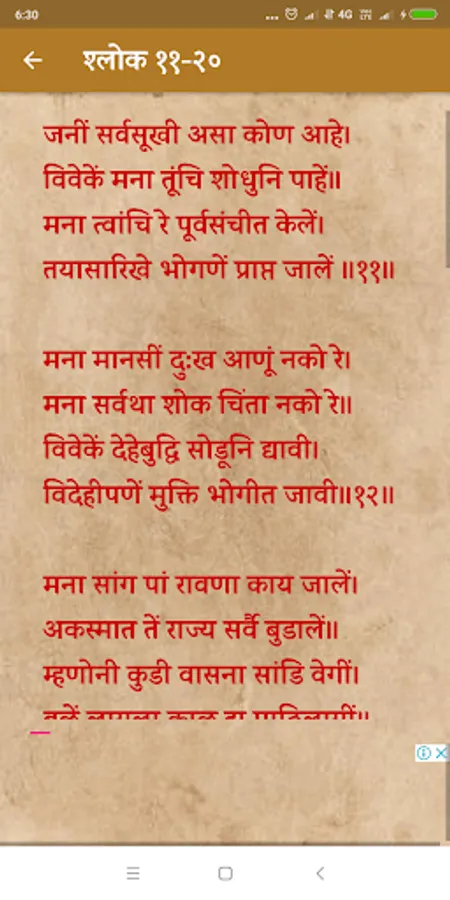 6:30
... 4G
श्लोक ११-२०
जनीं सर्वसूखी असा कोण आहे।
विवेकें मना तूंचि शोधुनि पाहें॥
मना त्वांचि रे पूर्वसंचीत केलें।
तयासारिखे भोगणें प्राप्त जालें ॥११॥
मना मानसीं दुःख आणूं नको रे।
मना सर्वथा शोक चिंता नको रे॥
विवेकें देहेबुद्धि सोडूनि द्यावी।
विदेहीपणें मुक्ति भोगीत जावी॥१२॥
मना सांग पां रावणा काय जालें।
अकस्मात तें राज्य सर्वै बुडालें॥
म्हणोनी कुडी वासना सांडि वेगीं।